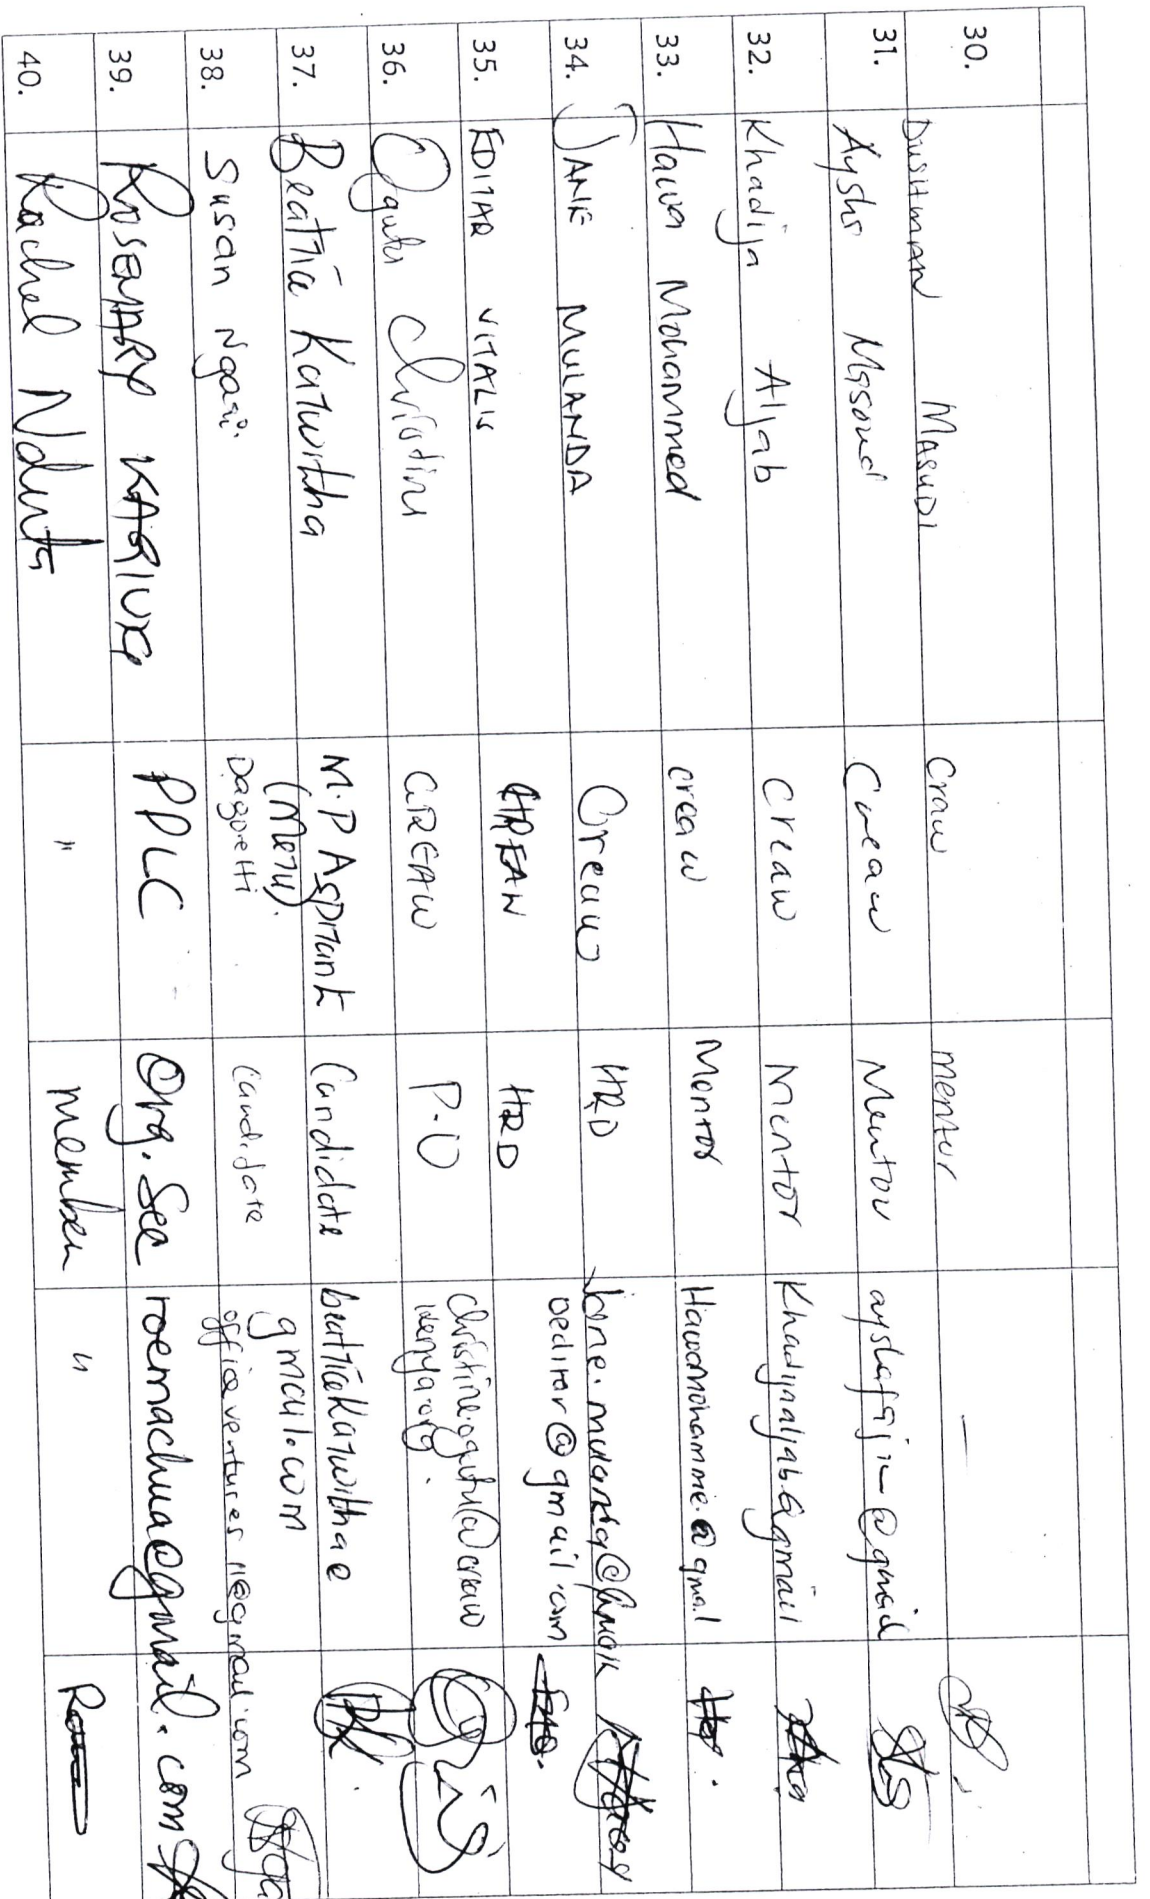 30. Dushman Masudi Craw mentor —
31. Aysha Masoud Creaw Mentor
32. Khadija Aljab Creaw Mentor Khadijaaljab@gmail
33. Hawa Mohammed creaw Mentor Hawamohamme.@gmal
34. JANE MULANDA Creaw HRD
35. EDITAR VITALIS CREAW HRD oeditar@gmail.com
36. Ogutu Christine CREAW P.O christineogutu@creaw
kenya.org.
37. Beatrice Karwitha M.P Aspirant Candidate beatricekarwithae
(Meru). gmail.com
38. Susan Ngari Dagoretti Candidate officeventures11@gmail.com
39. ROSEMARY KARIUKI PPLC Org. Sec roemachua@gmail.com
40. Rachel Nduta " member "